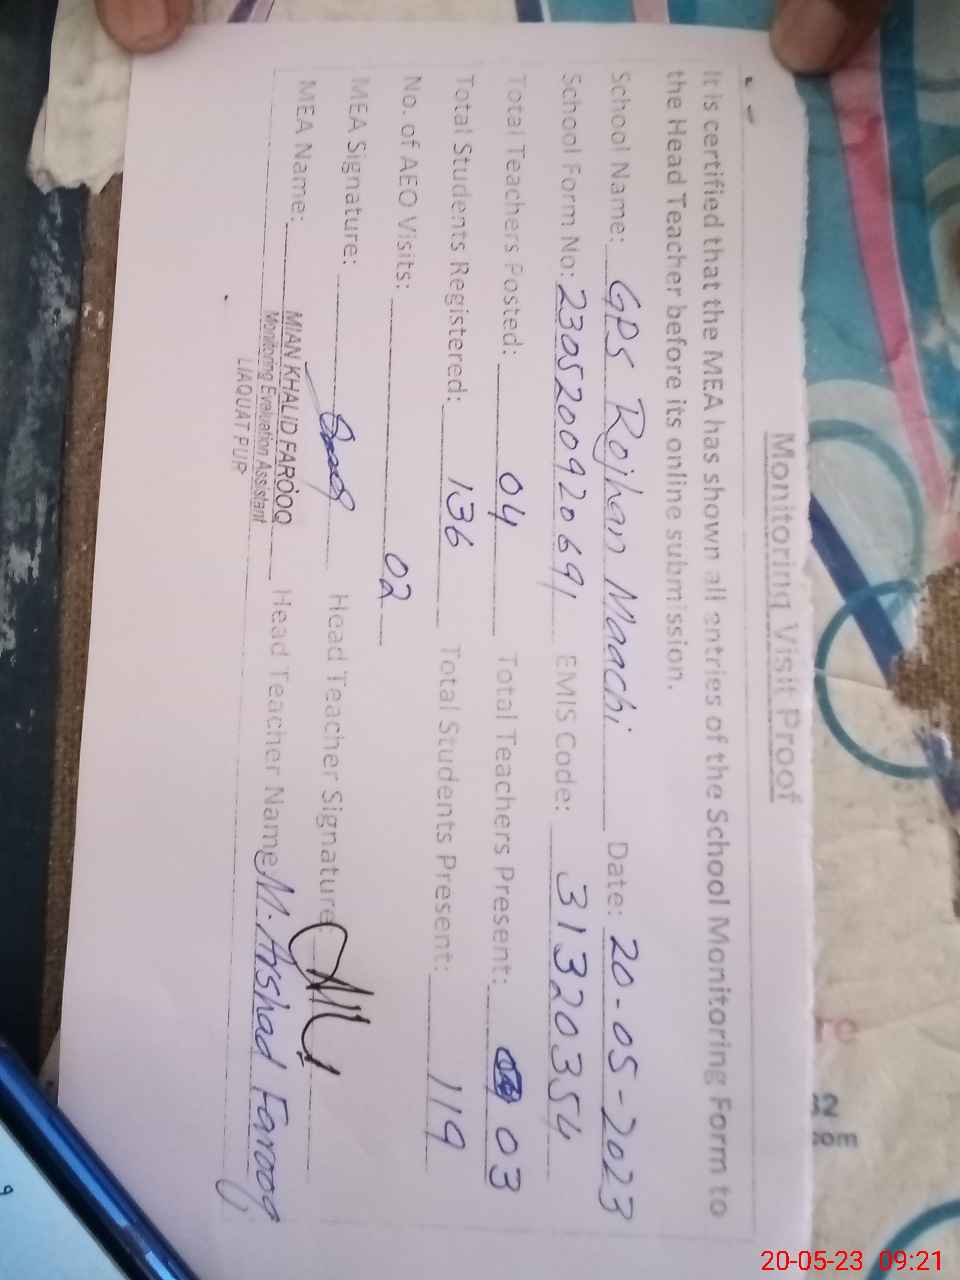 Monitoring Visit Proof
It is certified that the MEA has shown all entries of the School Monitoring Form to
the Head Teacher before its online submission.
School Name: GPS Rojhan Maachi Date: 20-05-2023
School Form No: 2305200920691 EMIS Code: 31320354
Total Teachers Posted: 04 Total Teachers Present: 03
Total Students Registered: 136 Total Students Present: 119
No. of AEO Visits: 02
MEA Signature: Head Teacher Signature:
MEA Name: MIAN KHALID FAROOQ Head Teacher Name: M. Arshad Farooq
Monitoring Evaluation Assistant
LIAQUAT PUR
re
32
com
9
20-05-23 09:21